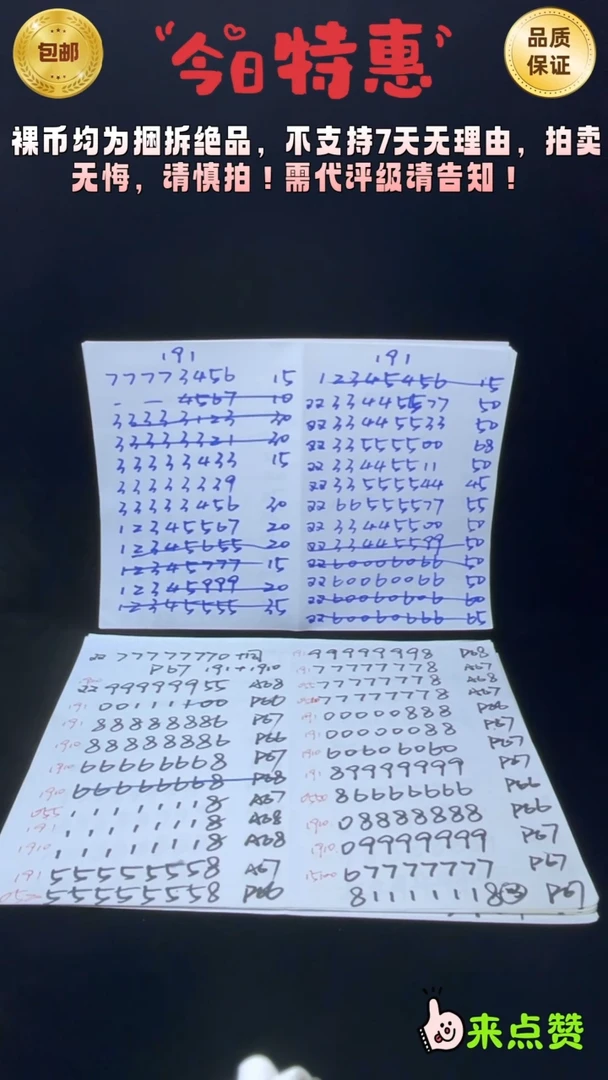 包邮
今日特惠
品质
保证
裸币均为捆拆绝品，不支持7天无理由，拍卖
无悔，请慎拍！需代评级请告知！
191
77773456 15
— — 4567 10
33333123 30
33333321 30
33333433 15
33333339
33333456 30
12345567 20
12345655 20
12345777 15
12345999 20
12345555 35
191
12345456 15
22 33445577 50
22 33445533 50
22 33555500 68
22 33445511 50
22 33555544 45
22 66555577 55
22 33445500 50
22 33445599 50
22 60006066 50
22 60060066 50
22 60060606 60
22 60606666 65
22 77777770
P67 191+1910
22 99999955 A68
191 00111100 P66
191 88888886 P67
1910 88888886 P66
1910 66666668 P67
1910 66666668 P68
055 11111118 A67
191 11111118 A68
1910 11111118 A68
191 55555558 A67
55555558 P66
191 99999998 P68
191 77777778 A67
77777778 A68
77777778 A67
191 00000888 P66
191 00000888 P67
1910 60606060 P67
191 89999999 P67
86666666 P66
1910 08888888 P66
1910 09999999 P67
67777777 P67
81111118 P67
来点赞